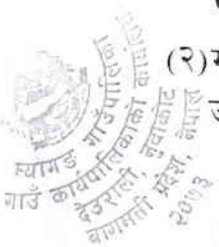 (२)
म्यागङ गाउँपालिका
गाउँ कार्यपालिकाको कार्यालय
देउराली, नुवाकोट
बागमती प्रदेश, नेपाल
२०७३